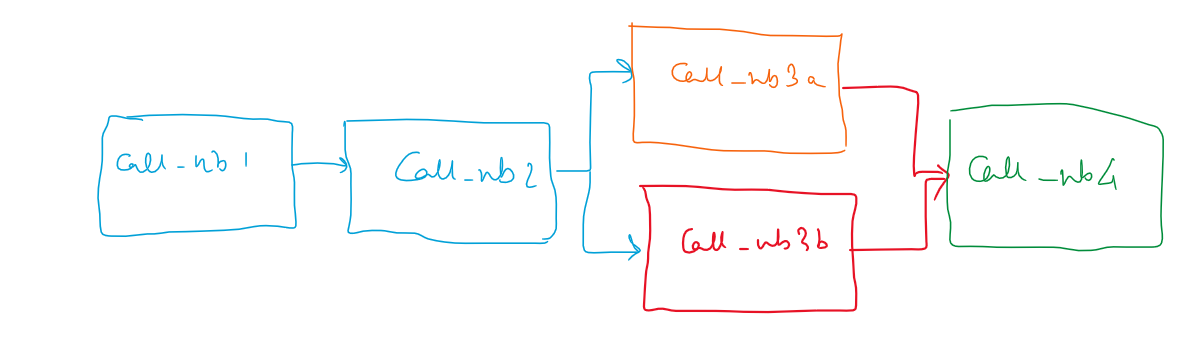 Call_nb1
Call_nb2
Call_nb3a
Call_nb3b
Call_nb4